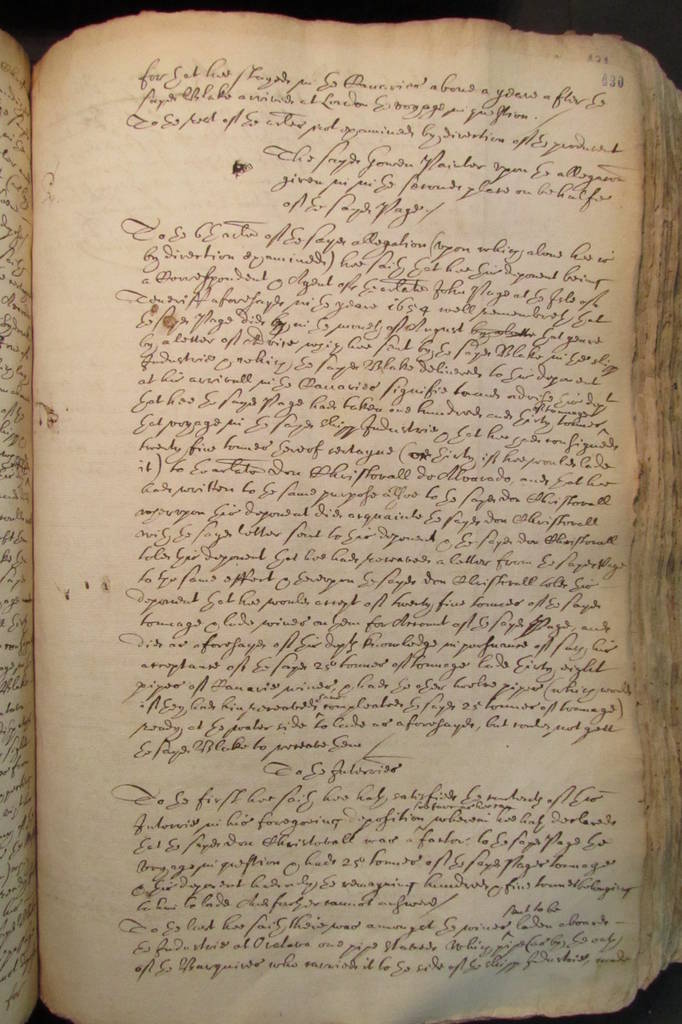 430
for that hee stayed in the Canaries above a yeare after the
sayd Blake arrived at London the voyage in question./
To the rest of the arlës not examined by direction of the producent
The sayd Gowen Painter upon the allegation
given in in the second place on behalfe
of the sayd Page./
To the 6th artle of the sayd allegation (upon which alone hee is
by direction examined) hee saith that hee this deponent being
a Correspondent & Agent of the arlate John Page at the Isle of
Teneriff aforesayd in the yeare 1654 well remembreth that
the sayd Page did in the moneth of August that yeare
by a letter of Advise which hee sent by the sayd Blake in the shipp
Industrie & which the sayd Blake delivered to this deponent
at his arrivall in the Canaries signifie and advise this depont
that hee the sayd Page had taken one hundred and thirty tonnes of tonnage
that voyage in the sayd shipp Industrie & that hee had consigned
twenty five tonnes thereof certayne (or thirty if hee would lade
it) to the arlate don Christovall de Alvarado, and that hee
had written to the same purpose alsoe to the sayd don Christovall
whereupon this deponent did acquainte the sayd don Christovall
with the sayd letter sent to this deponent & the sayd don Christovall
told this deponent that hee had received a letter from the sayd Page
to the same effect & thereupon the sayd don Christovall told this
deponent that hee would accept of twenty five tonnes of the sayd
tonnage & lade wines on them for Account of the sayd Page, and
did as aforesayd of this depts knowledge in pursuance of such his
acceptance of the sayd 25 tonnes of tonnage lade thirty eight
pipes of Canarie wines, & had the other twelve pipes (which would
if they had bin received have compleated the sayd 25 tonnes of tonnage)
ready at the water side to lade as aforesayd, but could not gett
the sayd Blake to receave them./
To the Interries
To the first hee saith hee hath satisfied the contents of this
Interrie in his foregoing deposition wherein hee hath declared
that the sayd don Christovall was a factor to the sayd Page the
voyage in question & had 25 tonnes of the sayd Pages tonnage
& this deponent had only the remayning hundred & five tonnes belonging
to him to lade And further cannot answere/
To the last hee saith there was amongst the wines sent to be laden aboard
the Industrie at Orotava one pipe which pipe (as by the
of the Barquiers who carried it to the side of the shipp Industrie,